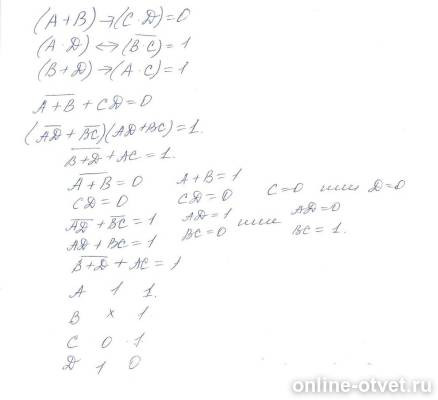 (A+B)→(C·D)=0
(A·D)↔(B̅ ̅C̅)=1
(B+D)→(A·C)=1
A̅+̅B̅ + CD=0
(A̅D̅ + B̅C̅)(AD+BC)=1.
B̅+̅D̅ + AC=1.
A̅+̅B̅ = 0 A+B=1
CD=0 CD=0 C=0 или D=0
A̅D̅ + B̅C̅ = 1 AD=1 или AD=0
AD+BC=1 BC=0 BC=1.
B̅+̅D̅ + AC=1
A 1 1.
B x 1
C 0 1
D 1 0
online-otvet.ru